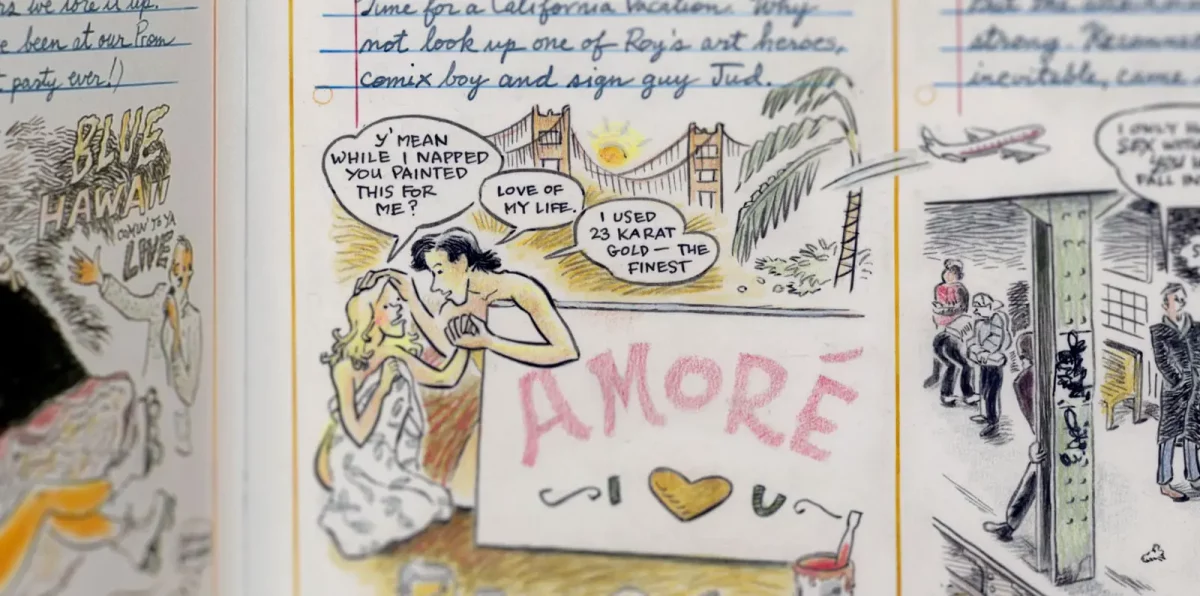 we tore it up.
been at our Prom
party ever!)
BLUE
HAWAII
COMIN' TO YA
LIVE
Time for a California Vacation. Why
not look up one of Roy's art heroes,
comix boy and sign guy Jud.
Y'MEAN
WHILE I NAPPED
YOU PAINTED
THIS FOR
ME?
LOVE OF
MY LIFE.
I USED
23 KARAT
GOLD — THE
FINEST
AMORÉ
I U
strong.
inevitable, came
I ONLY
SEX
YOU
FALL IN